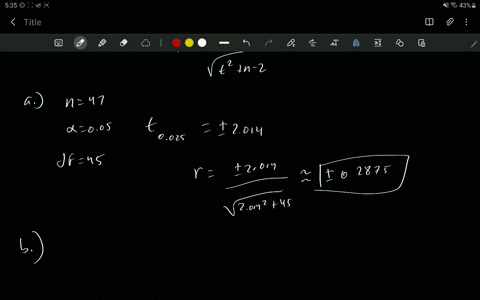 5:35
43%
Title
√t² + n-2
a.) n=47
α=0.05 t0.025 = ±2.014
df=45
r = ±2.014 / √2.014² + 45 ≈ ±0.2875
b.)